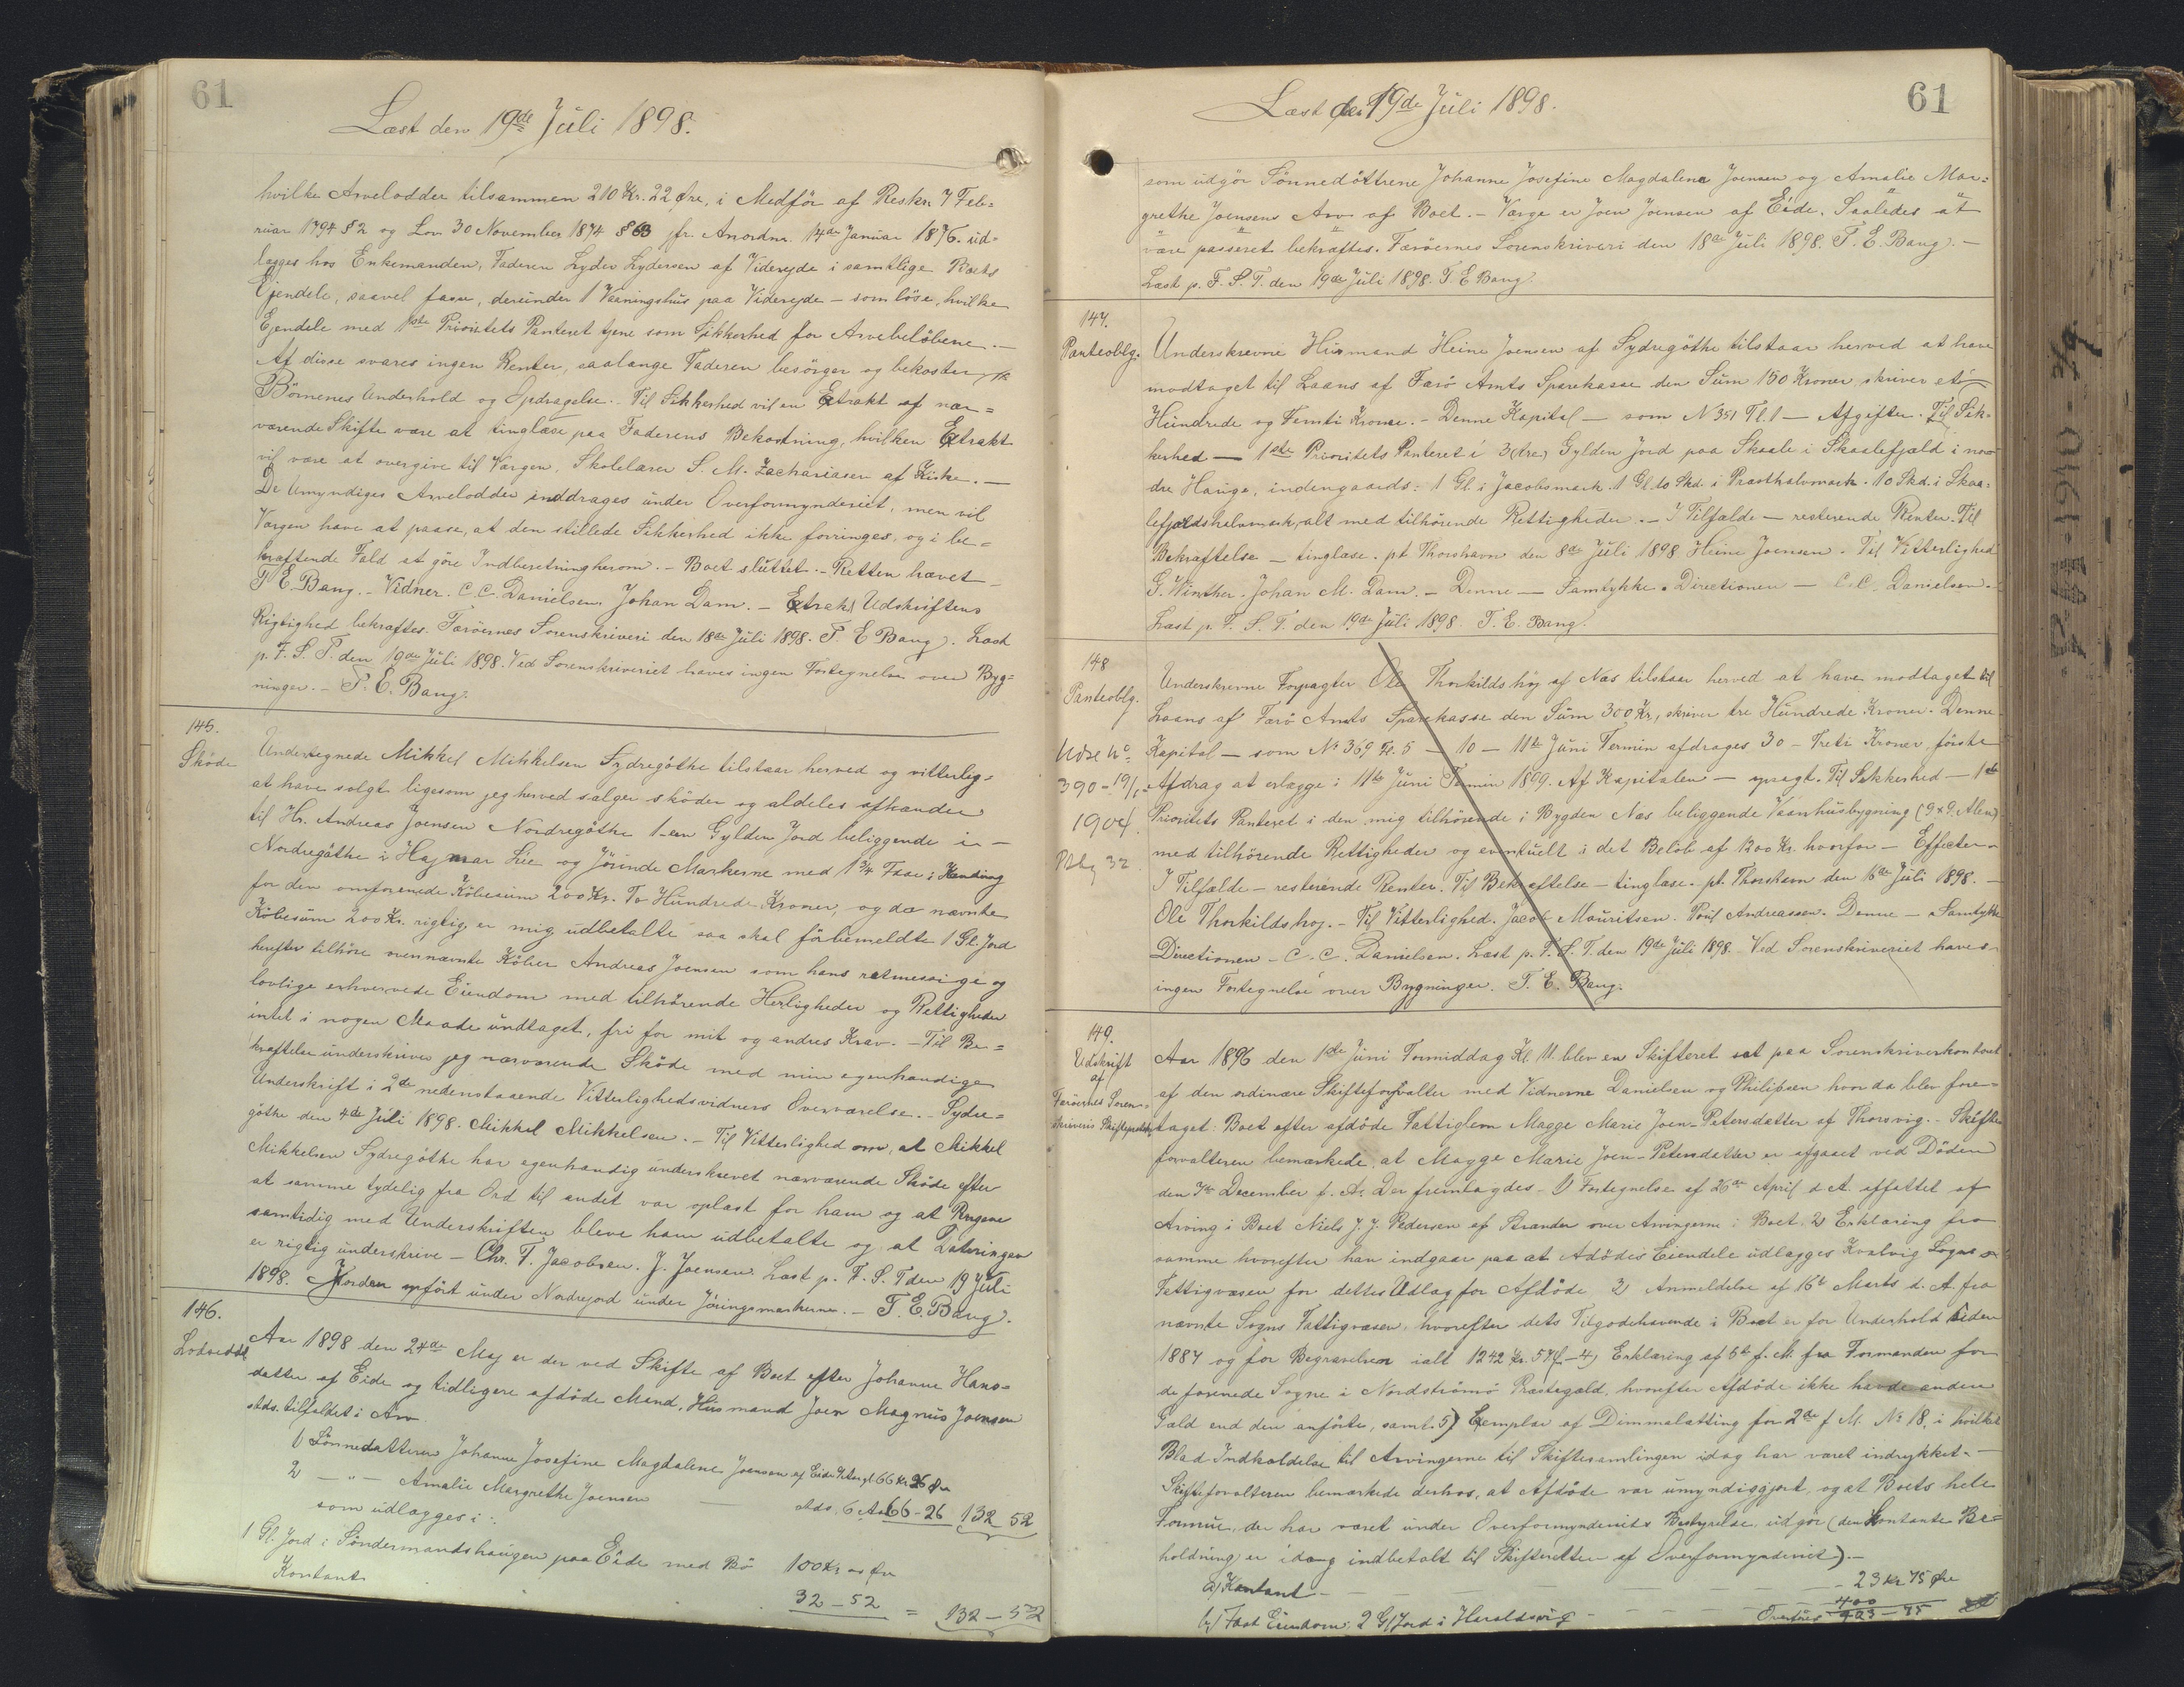 61
Læst den 19de Juli 1898.
hvilke Arvelodder tilsammen 210 Kr. 22 Øre, i Medför af Reskr. 7 Feb=
ruar 1794 § 2 og Lov 30 November 1874 § 63 jfr. Anordnr. 14de Januar 1876. ud=
lægges hos Enkemanden, Faderen Lyder Lydersen af Viderejde i samtlige Boets
Ejendele, saavel faste, derunder 1 Vaaningshus paa Viderejde - som löse, hvilke
Ejendele med 1ste Prioritets Panteret tjene som Sikkerhed for Arvebelöbene. -
Af disse svares ingen Renter, saalænge Faderen besörger og bekoster
Börnenes Underhold og Opdragelse. Til Sikkerhed vil en Extrakt af nær=
værende Skifte være at tinglæse paa Faderens Bekostning, hvilken Extrakt
vil være at overgive til Værgen, Skolelærer S. M. Zachariasen af Kirke. -
De Umyndiges Arvelodder inddrages under Overformynderiet, men vil
Værgen have at paase, at den stillede Sikkerhed ikke forringes, og i be=
kræftende Fald at göre Indberetning herom. - Boet sluttet. - Retten hævet -
T. E. Bang. - Vidner. C. C. Danielsen. Johan Dam. - Extrakt Udskriftens
Rigtighed bekræftes. Færöernes Sorenskriveri den 18de Juli 1898. T. E. Bang. Læst
p. F. S. T. den 19de Juli 1898. Ved Sorenskriveriet haves ingen Fortegnelse over Byg=
ninger. - T. E. Bang.
145.
Sköde
Undertegnede Mikkel Mikkelsen Sydregöthe tilstaar herved og vitterlig=
at have solgt ligesom jeg herved sælger sköder og aldeles afhænder
til Hr. Andreas Joensen Nordregöthe 1 - en Gylden Jord beliggende i -
Nordregöthe i Hajmar Lüe og Jörinde Markerne med 1 3/4 Faar i Hauding
for den omforenede Köbesum 200 Kr. To Hundrede Kroner, og da nævnte
Köbesum 200 Kr. rigtig er mig udbetalte saa skal förbemeldte 1 Gl. Jord
herefter tilhöre ovennævnte Köber Andreas Joensen som hans retmessige og
lovlige erhvervede Eiendom med tilhörende Herligheder og Rettigheder
intet i nogen Maade undtaget, fri for mit og andres Krav. - Til Be=
kræftelse underskriver jeg nærværende Sköde med min egenhændige
Underskrift i 2de nedenstaaende Vitterlighedsvidners Overværelse. - Sydre=
göthe den 4de Juli 1898. Mikkel Mikkelsen. - Til Vitterlighed om, at Mikkel
Mikkelsen Sydregöthe har egenhændig underskrevet nærværende Sköde efter
at samme tydelig fra Ord til andet var oplæst for ham og at Pengene
samtidig med Underskriften bleve ham udbetalte og at Dateringen
er rigtig underskrive - Chr. F. Jacobsen. J. Joensen. Læst p. F. S. T den 19 Juli
1898. Jorden opfört under Nordrejord under Jöringsmarkerne. - T. E. Bang.
146.
Lodseddel
Aar 1898 den 24de Maj er der ved Skifte af Boet efter Johanne Hans=
datter af Eide og tidligere afdöde Mand, Husmand Joen Magnus Joensen
stds. tilfaldet i Arv
1) Sönnedatteren Johanne Josefine Magdalene Joensen af Eide 9 Aar gl. 66 Kr 26 Öre
2 - " - Amalie Margrethe Joensen - stds. 6 Aar 66 - 26 132 52
som udlægges i:
1 Gl. Jord i Söndermandshaugen paa Eide med Bö 100 Kr 00 Öre
Kontant 32 - 52 = 132 - 52
61
Læst den 19de Juli 1898.
som udgör Sönnedöttrene Johanne Josefine Magdalena Joensen og Amalie Mar=
grethe Joensens Arv af Boet. - Værge er Joen Joensen af Eide. Saaledes at
være passeret bekræftes. Færöernes Sorenskriveri den 18de Juli 1898. T. E. Bang. -
Læst p. F. S. T. den 19de Juli 1898. T. E Bang.
147.
Panteoblg.
Underskrevne Husmand Heine Joensen af Sydregöthe tilstaar herved at have
modtaget til Laans af Færö Amts Sparekasse den Sum 150 Kroner, skriver et
Hundrede og Femti Kroner. - Denne Kapital - som N 351 Fl. 1 - Afgifter. Til Sik=
kerhed - 1ste Prioritets Panteret i 3 (tre) Gylden Jord paa Skaale i Skaalefjæld i nor
dre Hauge, indengaards: 1 Gl. i Jacobsmark. 1 Gl. 10 Skd. i Præsthalvmark. 10 Skd. i Skaa=
lefjældshalvmark, alt med tilhörende Rettigheder. - I Tilfælde - resterende Renter. Til
Bekræftelse - tinglæse. pt Thorshavn den 8de Juli 1898 Heine Joensen. Til Vitterlighed
G. Winther. Johan M. Dam. - Denne - Samtykke. Directionen - C. C. Danielsen.
Læst p. F. S. T. den 19de Juli 1898. T. E. Bang.
148
Panteoblg.
Udsl No
390 - 19/1
1904
Underskrevne Forpagter Ole Thorkildshöj af Næs tilstaar herved at have modtaget til
Laans af Færö Amts Sparekasse den Sum 300 Kr, skriver tre Hundrede Kroner. Denne
Kapital - som No 369 Fl. 5 - 10 - 11te Juni Termin afdrages 30 - Treti Kroner, förste
Afdrag at erlægge i 11te Juni Termin 1899. Af Kapitalen - opsagt. Til Sikkerhed - 1ste
Prioritets Panteret i den mig tilhörende i Bygden Næs beliggende Vaanhusbygning (9 x 9 Alen)
med tilhörende Rettigheder og eventuelt i det Belöb af 1200 Kr. hvorfor - Effecter -
I Tilfælde - resterende Renter. Til Bekræftelse - tinglæse. pt. Thorshavn den 16de Juli 1898. -
Ole Thorkildshoj. - Til Vitterlighed. Jacob Mouritsen. Poul Andreassen. Denne - Samtykke
Directionen - C. C. Danielsen. Læst p. F. S. T. den 19de Juli 1898. Ved Sorenskriveriet haves
ingen Fortegnelse over Bygninger. T. E. Bang.
149.
Udskrift
af
Færöernes Soren=
skriveris Skifteprotokol
Aar 1896 den 1ste Juni Formiddag Kl. 11. blev en Skifteret sat paa Sorenskriverkontoret
af den ordinære Skifteforvalter med Vidnerne Danielsen og Philipsen hvor da blev fore=
taget: Boet efter afdöde Fattiglem Magge Marie Joen-Petersdatter af Thorsvig. - Skifte
forvalteren bemærkede, at Magge Marie Joen-Petersdatter er afgaaet ved Döden
den 7de December f. A. Der fremlagdes 1) Fortegnelse af 26de April d. A. affattet af
Arving i Boet Niels J. J. Pedersen af Strander over Arvingerne i Boet. 2) Erklæring fra
samme hvorefter han indgaar paa at Afdödes Eiendele udlægges Kvalvig Sogns
Fattigvæsen for dettes Udlæg for Afdöde 3) Anmeldelse af 16de Marts d. A. fra
nævnte Sogns Fattigvæsen, hvorefter dets Tilgodehavende i Boet er for Underhold siden
1887 og for Begravelsen ialt 1242 Kr. 57 Ö. - 4) Erklæring af 6te f. M. fra Formanden for
de forenede Sogne i Nordströmö Præstegæld, hvorefter Afdöde ikke havde anden
Gæld end den anförte, samt 5) Exemplar af Dimmalætting for 2de f. M. No 18. i hvilket
Blad Indkaldelse til Arvingerne til Skiftesamlingen idag har været indrykket. -
Skifteforvalteren bemærkede derhos, at Afdöde var umyndiggjort, og at Boets hele
Formue, der har været under Overformynderiets Bestyrelse, udgör (den kontante Be=
holdning er idag indbetalt til Skifteretten af Overformynderiet). -
a) Kontant - - - - 23 Kr 75 Öre
b) Fast Eiendom: 2 Gl. Jord i Haraldsvig - - - 400
Overföres 423 - 75